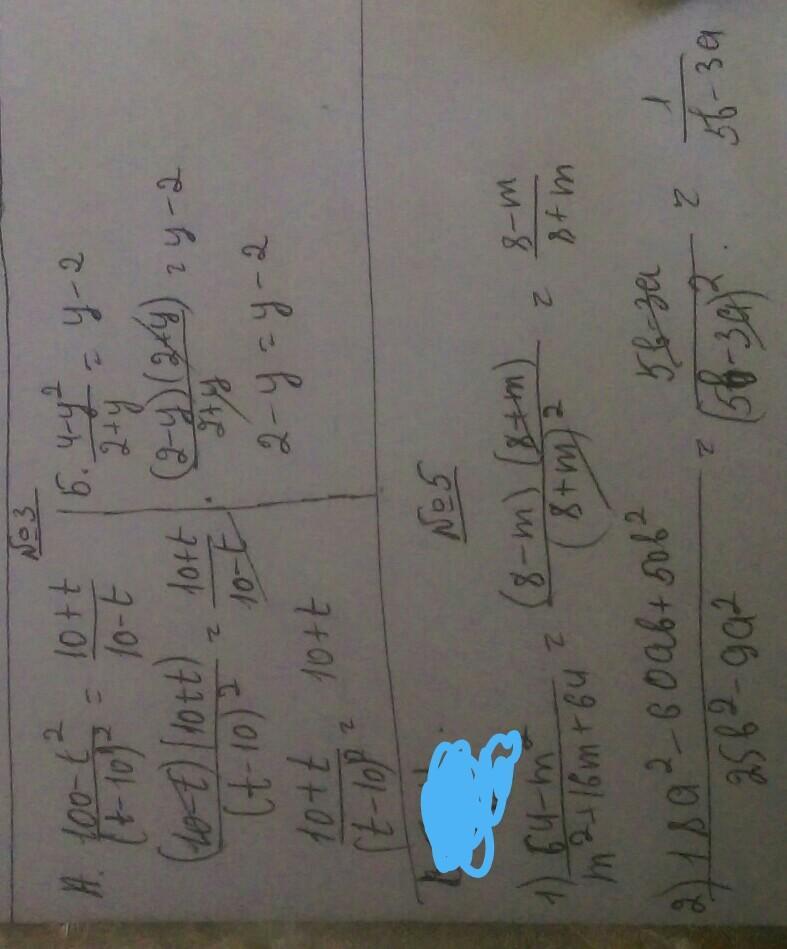 №3
А. (100-t²)/(t-10)² = (10+t)/(10-t)
((10-t)(10+t))/(t-10)² = (10+t)/(10-t)
(10+t)/(t-10)² = 10+t
Б. (4-y²)/(2+y) = y-2
((2-y)(2+y))/(2+y) = y-2
2-y = y-2
№5
1) (64-m²)/(m²+16m+64) = ((8-m)(8+m))/(8+m)² = (8-m)/(8+m)
2) (18a²-60ab+50b²)/(25b²-9a²) = (5b-3a)/(5b-3a)² = 1/(5b-3a)